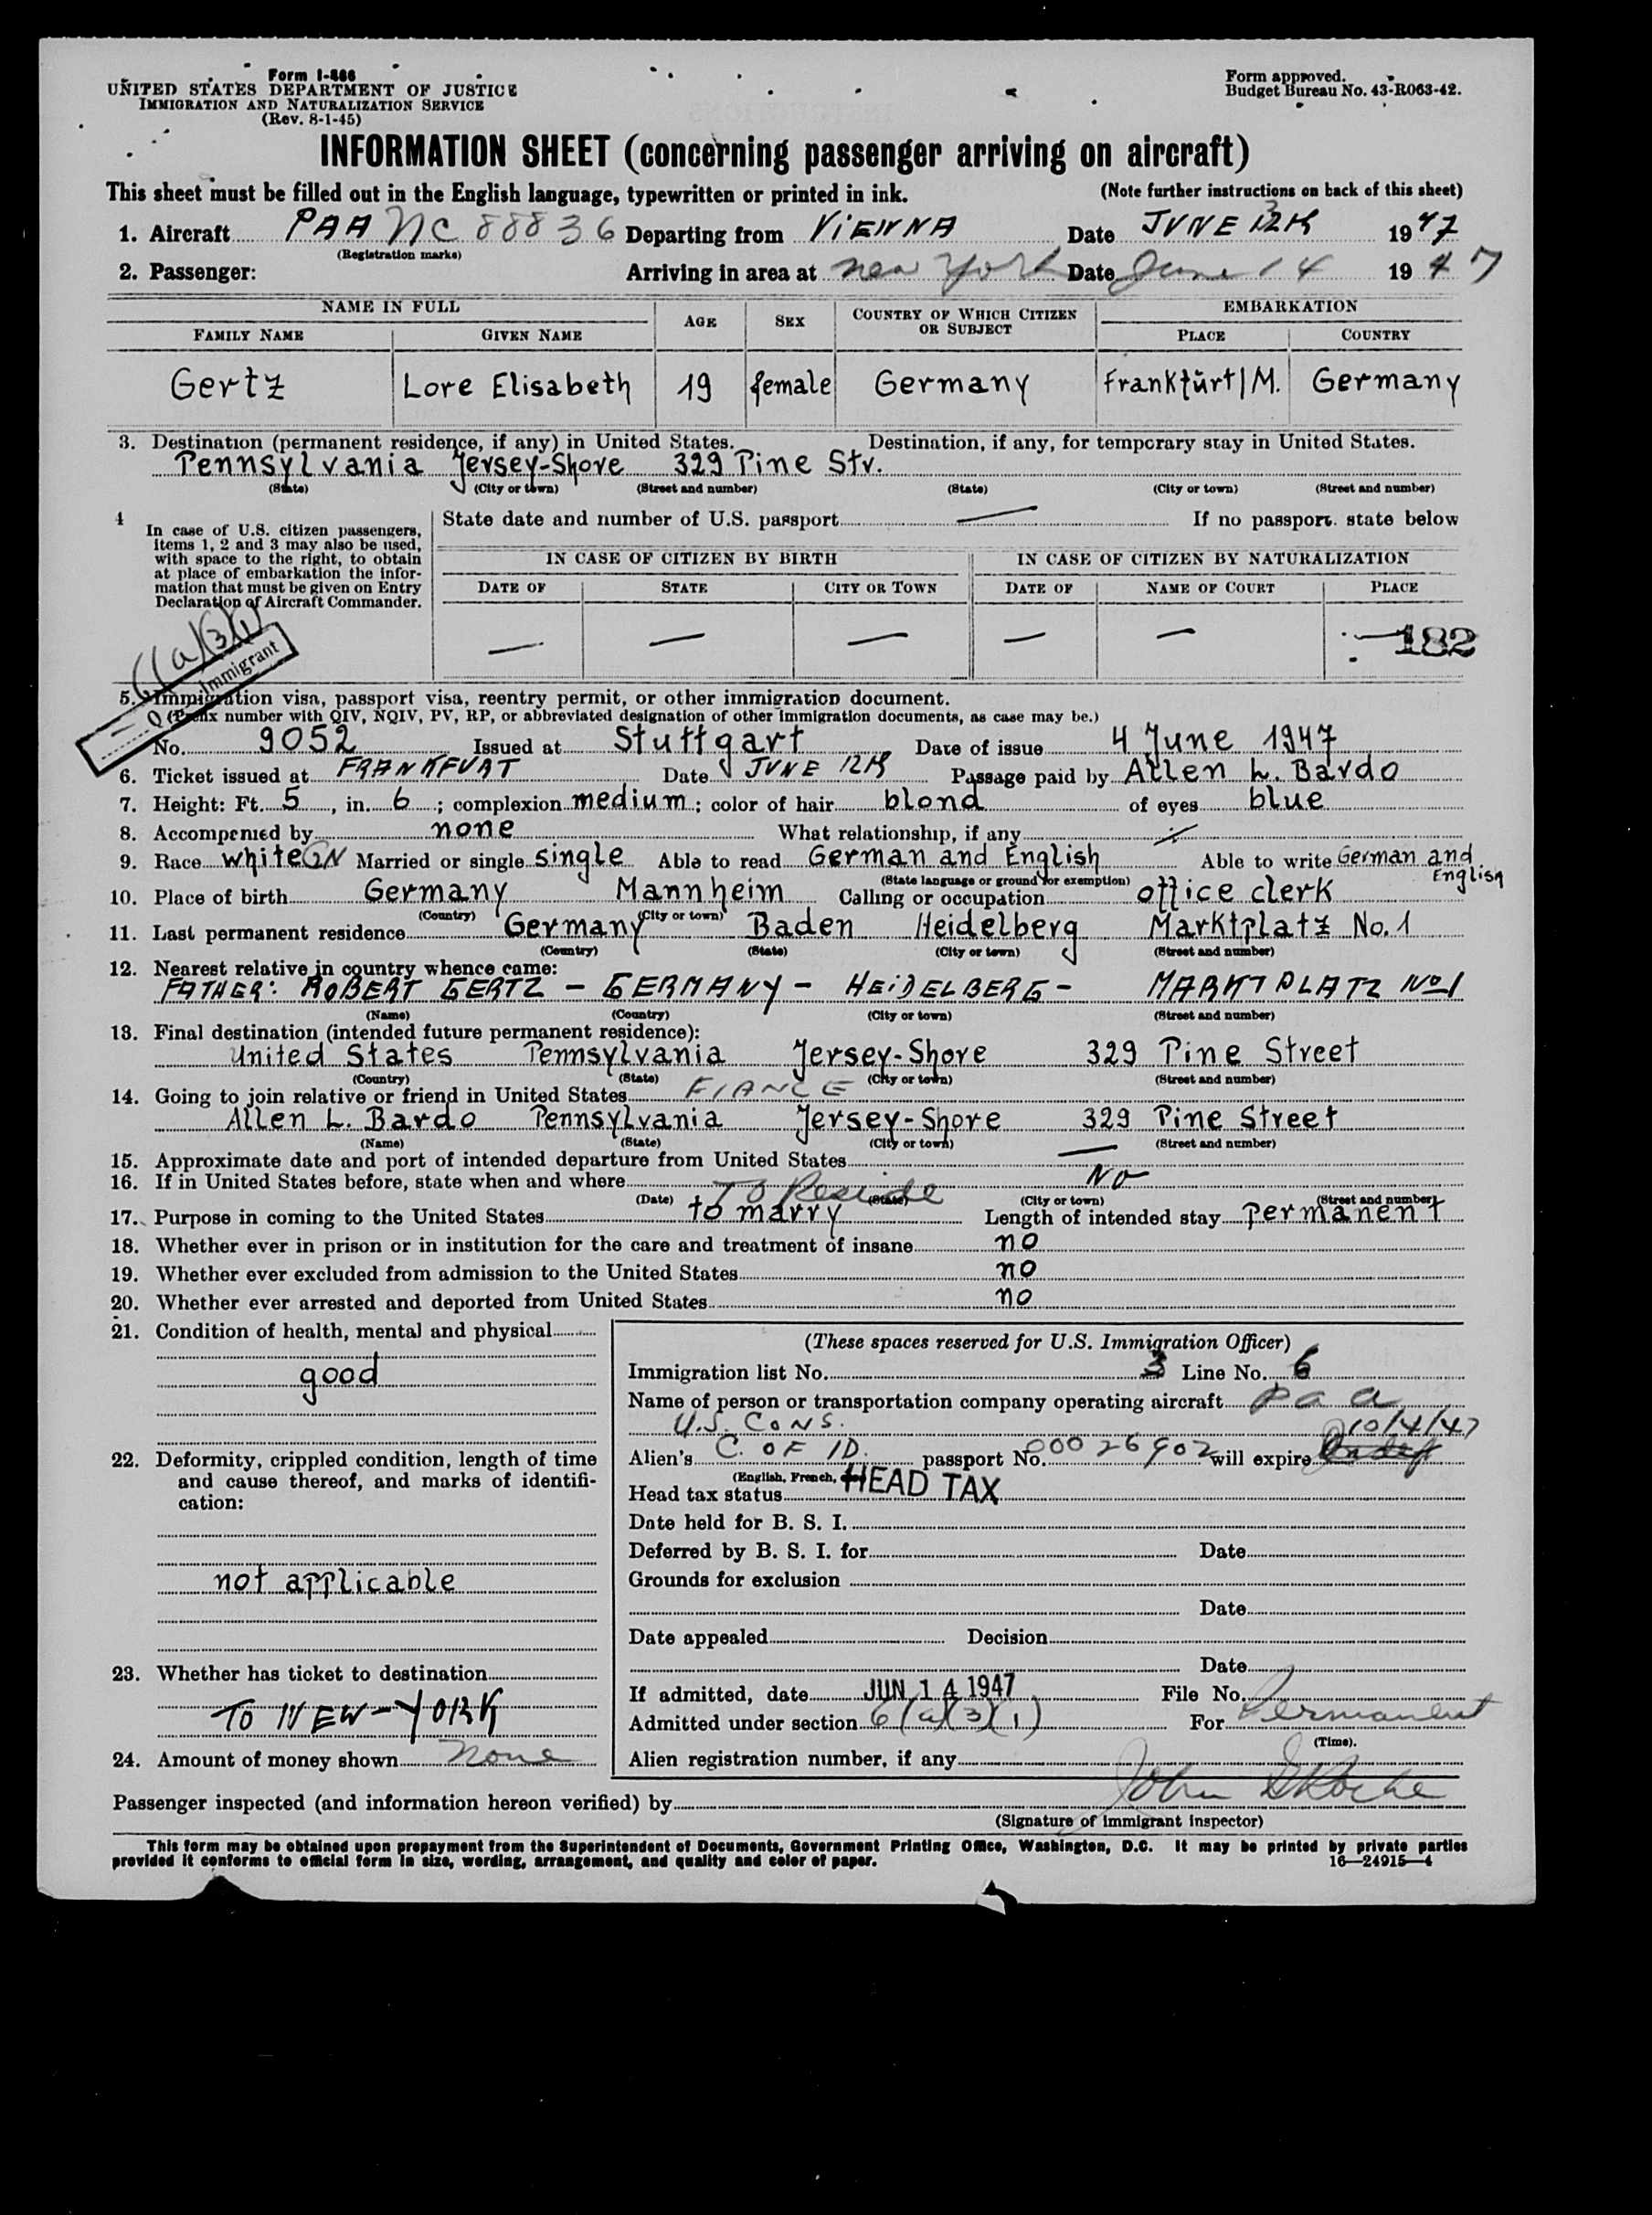 Form I-466
UNITED STATES DEPARTMENT OF JUSTICE
IMMIGRATION AND NATURALIZATION SERVICE
(Rev. 8-1-45)
Form approved.
Budget Bureau No. 43-R063-42.
INFORMATION SHEET (concerning passenger arriving on aircraft)
This sheet must be filled out in the English language, typewritten or printed in ink. (Note further instructions on back of this sheet)
1. Aircraft PAA NC 88836 Departing from VIENNA Date JUNE 12th 1947
(Registration marks)
2. Passenger: Arriving in area at New York Date June 14 1947
NAME IN FULL AGE SEX COUNTRY OF WHICH CITIZEN OR SUBJECT EMBARKATION
FAMILY NAME GIVEN NAME PLACE COUNTRY
Gertz Lore Elisabeth 19 female Germany Frankfurt/M. Germany
3. Destination (permanent residence, if any) in United States. Destination, if any, for temporary stay in United States.
Pennsylvania Jersey-Shore 329 Pine Str.
(State) (City or town) (Street and number) (State) (City or town) (Street and number)
4 In case of U.S. citizen passengers, items 1, 2 and 3 may also be used, with space to the right, to obtain at place of embarkation the information that must be given on Entry Declaration of Aircraft Commander.
State date and number of U.S. passport — If no passport. state below
IN CASE OF CITIZEN BY BIRTH IN CASE OF CITIZEN BY NATURALIZATION
DATE OF STATE CITY OR TOWN DATE OF NAME OF COURT PLACE
— — — — — — 182
6(a)(3)(1)
Q Immigrant
5. Immigration visa, passport visa, reentry permit, or other immigration document.
(Prefix number with QIV, NQIV, PV, RP, or abbreviated designation of other immigration documents, as case may be.)
No. 9052 Issued at Stuttgart Date of issue 4 June 1947
6. Ticket issued at FRANKFURT Date JUNE 12th Passage paid by Allen L. Bardo
7. Height: Ft. 5, in. 6; complexion medium; color of hair blond of eyes blue
8. Accompanied by none What relationship, if any
9. Race white GN Married or single single Able to read German and English Able to write German and English
(State language or ground for exemption)
10. Place of birth Germany Mannheim Calling or occupation office clerk
(Country) (City or town)
11. Last permanent residence Germany Baden Heidelberg Marktplatz No. 1
(Country) (State) (City or town) (Street and number)
12. Nearest relative in country whence came:
FATHER: ROBERT GERTZ - GERMANY - HEIDELBERG - MARKTPLATZ No 1
(Name) (Country) (City or town) (Street and number)
13. Final destination (intended future permanent residence):
United States Pennsylvania Jersey-Shore 329 Pine Street
(Country) (State) (City or town) (Street and number)
14. Going to join relative or friend in United States FIANCE
Allen L. Bardo Pennsylvania Jersey-Shore 329 Pine Street
(Name) (State) (City or town) (Street and number)
15. Approximate date and port of intended departure from United States —
16. If in United States before, state when and where NO
(Date) (State) (City or town) (Street and number)
To Reside
17. Purpose in coming to the United States to marry Length of intended stay permanent
18. Whether ever in prison or in institution for the care and treatment of insane no
19. Whether ever excluded from admission to the United States no
20. Whether ever arrested and deported from United States no
21. Condition of health, mental and physical
good
22. Deformity, crippled condition, length of time and cause thereof, and marks of identification:
not applicable
23. Whether has ticket to destination
TO NEW-YORK
24. Amount of money shown None
(These spaces reserved for U.S. Immigration Officer)
Immigration list No. 3 Line No. 6
Name of person or transportation company operating aircraft P a a
U.S. CONS. 10/4/47
Alien's C. OF ID. passport No. 00026902 will expire
(English, French,
Head tax status HEAD TAX
Date held for B. S. I.
Deferred by B. S. I. for Date
Grounds for exclusion
Date
Date appealed Decision
Date
If admitted, date JUN 14 1947 File No.
Admitted under section 6(a)(3)(1) For Permanent
(Time).
Alien registration number, if any
Passenger inspected (and information hereon verified) by John Roche
(Signature of immigrant inspector)
This form may be obtained upon prepayment from the Superintendent of Documents, Government Printing Office, Washington, D.C. It may be printed by private parties
provided it conforms to official form in size, wording, arrangement, and quality and color of paper. 16—24915-4